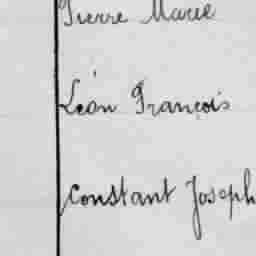 Pierre Marie
Léon François
Constant Joseph